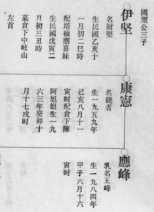 國璽公三子
伊堅
名財堅
生民國乙亥十
一月初二巳時
配塔橋應喜妹
生民國戊寅二
月初三丑時
墓倉下中岐山
左首
康憲
名錢者
生一九五九年
己亥八月十一
寅时配倉下陳
阿姐姐生一九
六三年癸卯十
月十七戌时
應峰
乳名王峰
生一九八四年
甲子六月十六
寅时